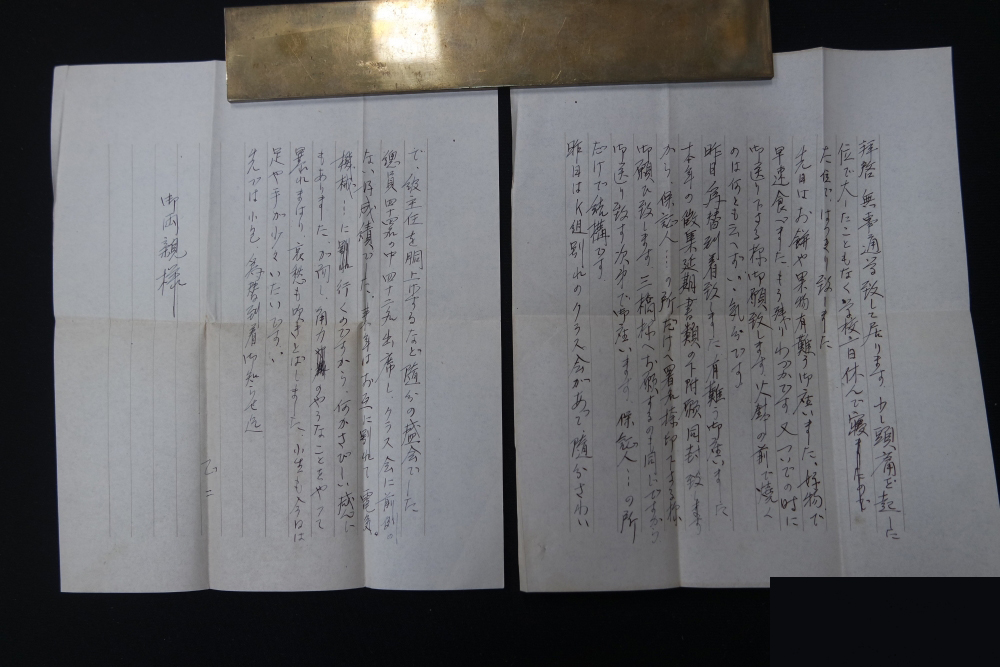 拝啓 無事通学致して居ります、少し頭痛を起した
位で大したこともなく学校一日休んで寝ましたのみ
た位ではつきり致しました
先日はお餅や果物有難う御座いました、好物で
早速食べました もう残りわづかです 又ついでの時に
御送り下さる様御願致します、火鉢の前で焼く
のは何とも云へないいい気分です
昨日為替到着致しました 有難う御座いました
本年の徴集延期書類の下附願同封致します
から、保証人…の所だけへ署名捺印下さる様
御願ひ致します 三橋様へお願するのも同じですから
御送り致す次第で御座います 保証人…の所
だけで結構です
昨日はK組別れのクラス会があつて、随分さわい
で、級主任を胴上げするなど随分の盛会でした
総員四十四名の中四十二名出席し、クラス会に前例の
ない好成績でした、まあお互に別れて電気、
機械…に別れ行くのですから何かさびしい感じ
もありました、が角力のやうなことをやつて
暴れまはり、哀愁も吹きとばしました、小生も今日は
足や手が少々いたいです、
先づは小包、為替到着御知らせ迄
御両親様